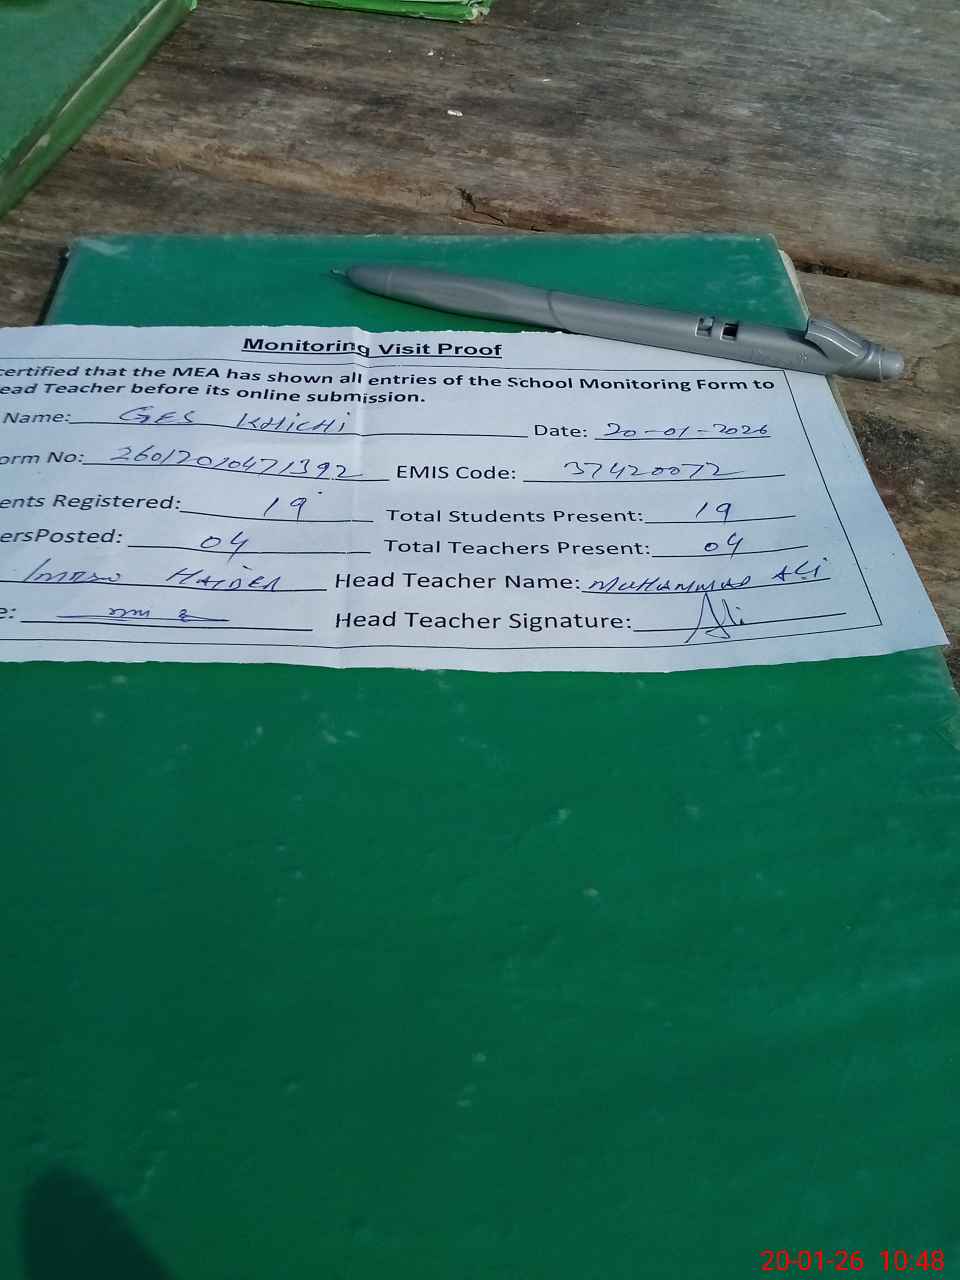 Monitoring Visit Proof
certified that the MEA has shown all entries of the School Monitoring Form to
ead Teacher before its online submission.
Name: GES KHICHI Date: 20-01-2026
orm No: 26012010471392 EMIS Code: 37420072
ents Registered: 19 Total Students Present: 19
ersPosted: 04 Total Teachers Present: 04
HAIDER Head Teacher Name: MUHAMMAD ALI
e: Head Teacher Signature: Ali
20-01-26 10:48